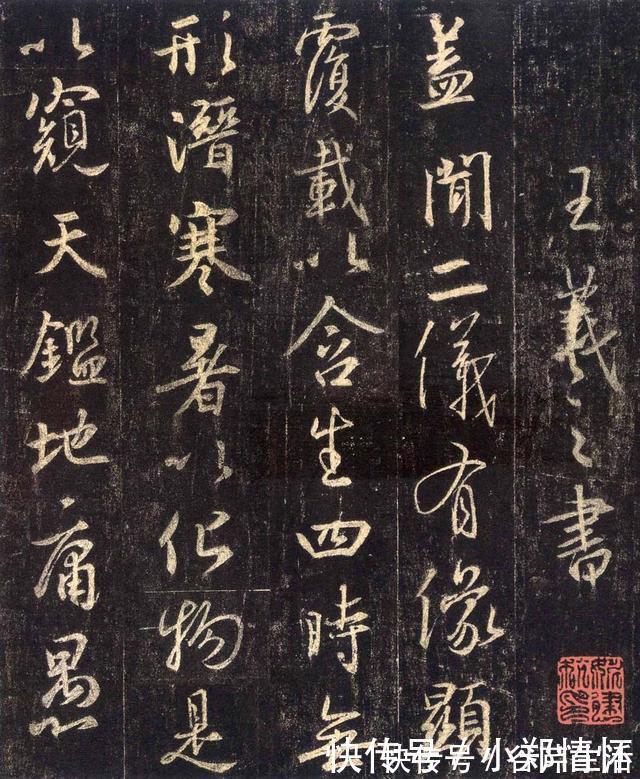 王羲之書
盖聞二儀有像顯
覆載以含生四時無
形潛寒暑以化物是
以窺天鑑地庸愚
快传号